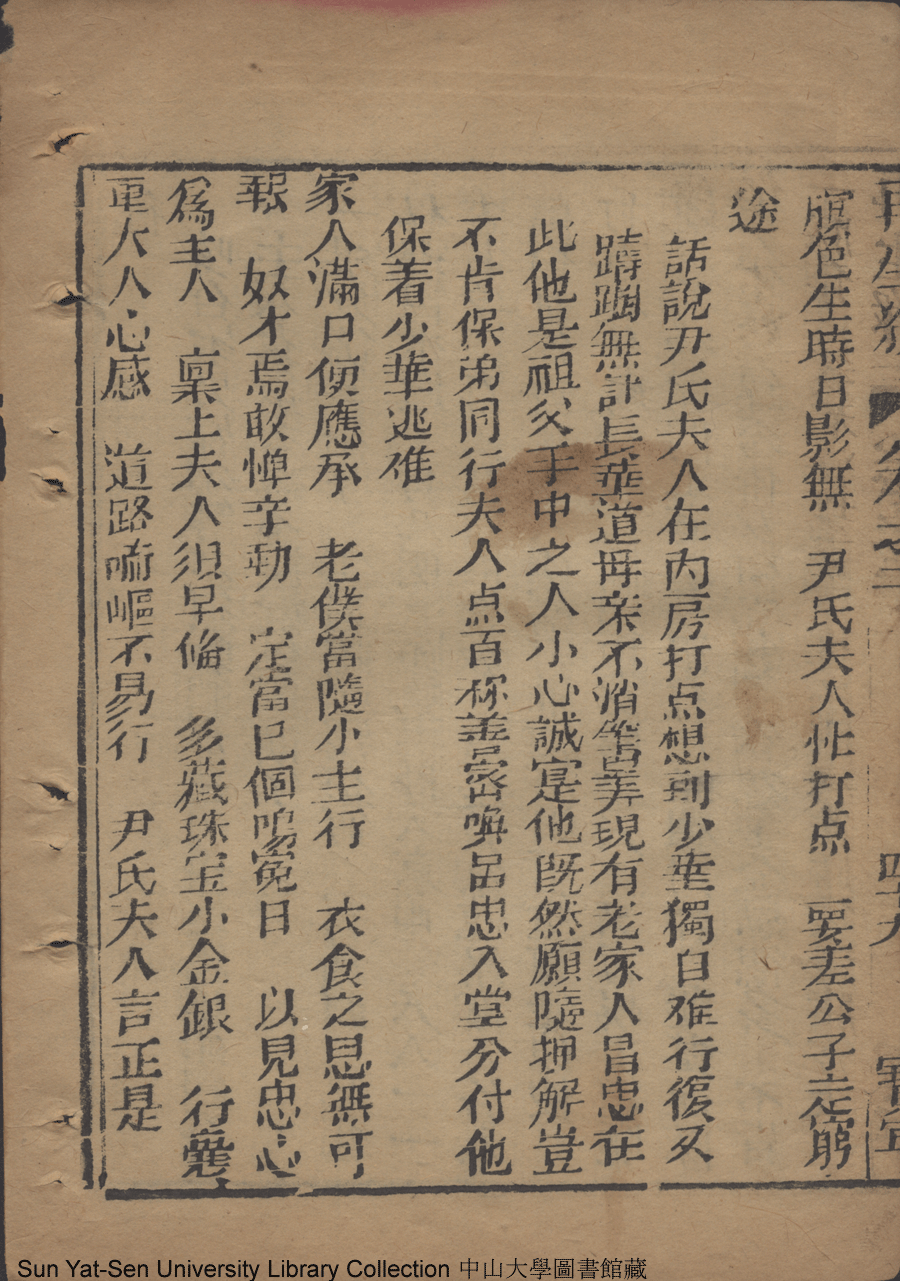 再生緣 卷之二 四十九 寧宜
牕色生時日影無 尹氏夫人忙打点 要差公子走窮
途
話說尹氏夫人在內房打点想到少華獨自难行復又
躊躇無計長華道母亲不消籌筭現有老家人呂忠在
此他是祖父手中之人小心誠寔他既然願隨押解豈
不肯保弟同行夫人点首称善密喚呂忠入堂分付他
保着少華逃难
家人滿口便應承 老僕當隨小主行 衣食之恩無可
報 奴才焉敢惮辛勤 定當已個鳴冤日 以見忠心
爲主人 稟上夫人須早俻 多藏珠宝小金銀 行囊
重大人心感 道路崎嶇不易行 尹氏夫人言正是
Sun Yat-Sen University Library Collection 中山大學圖書館藏